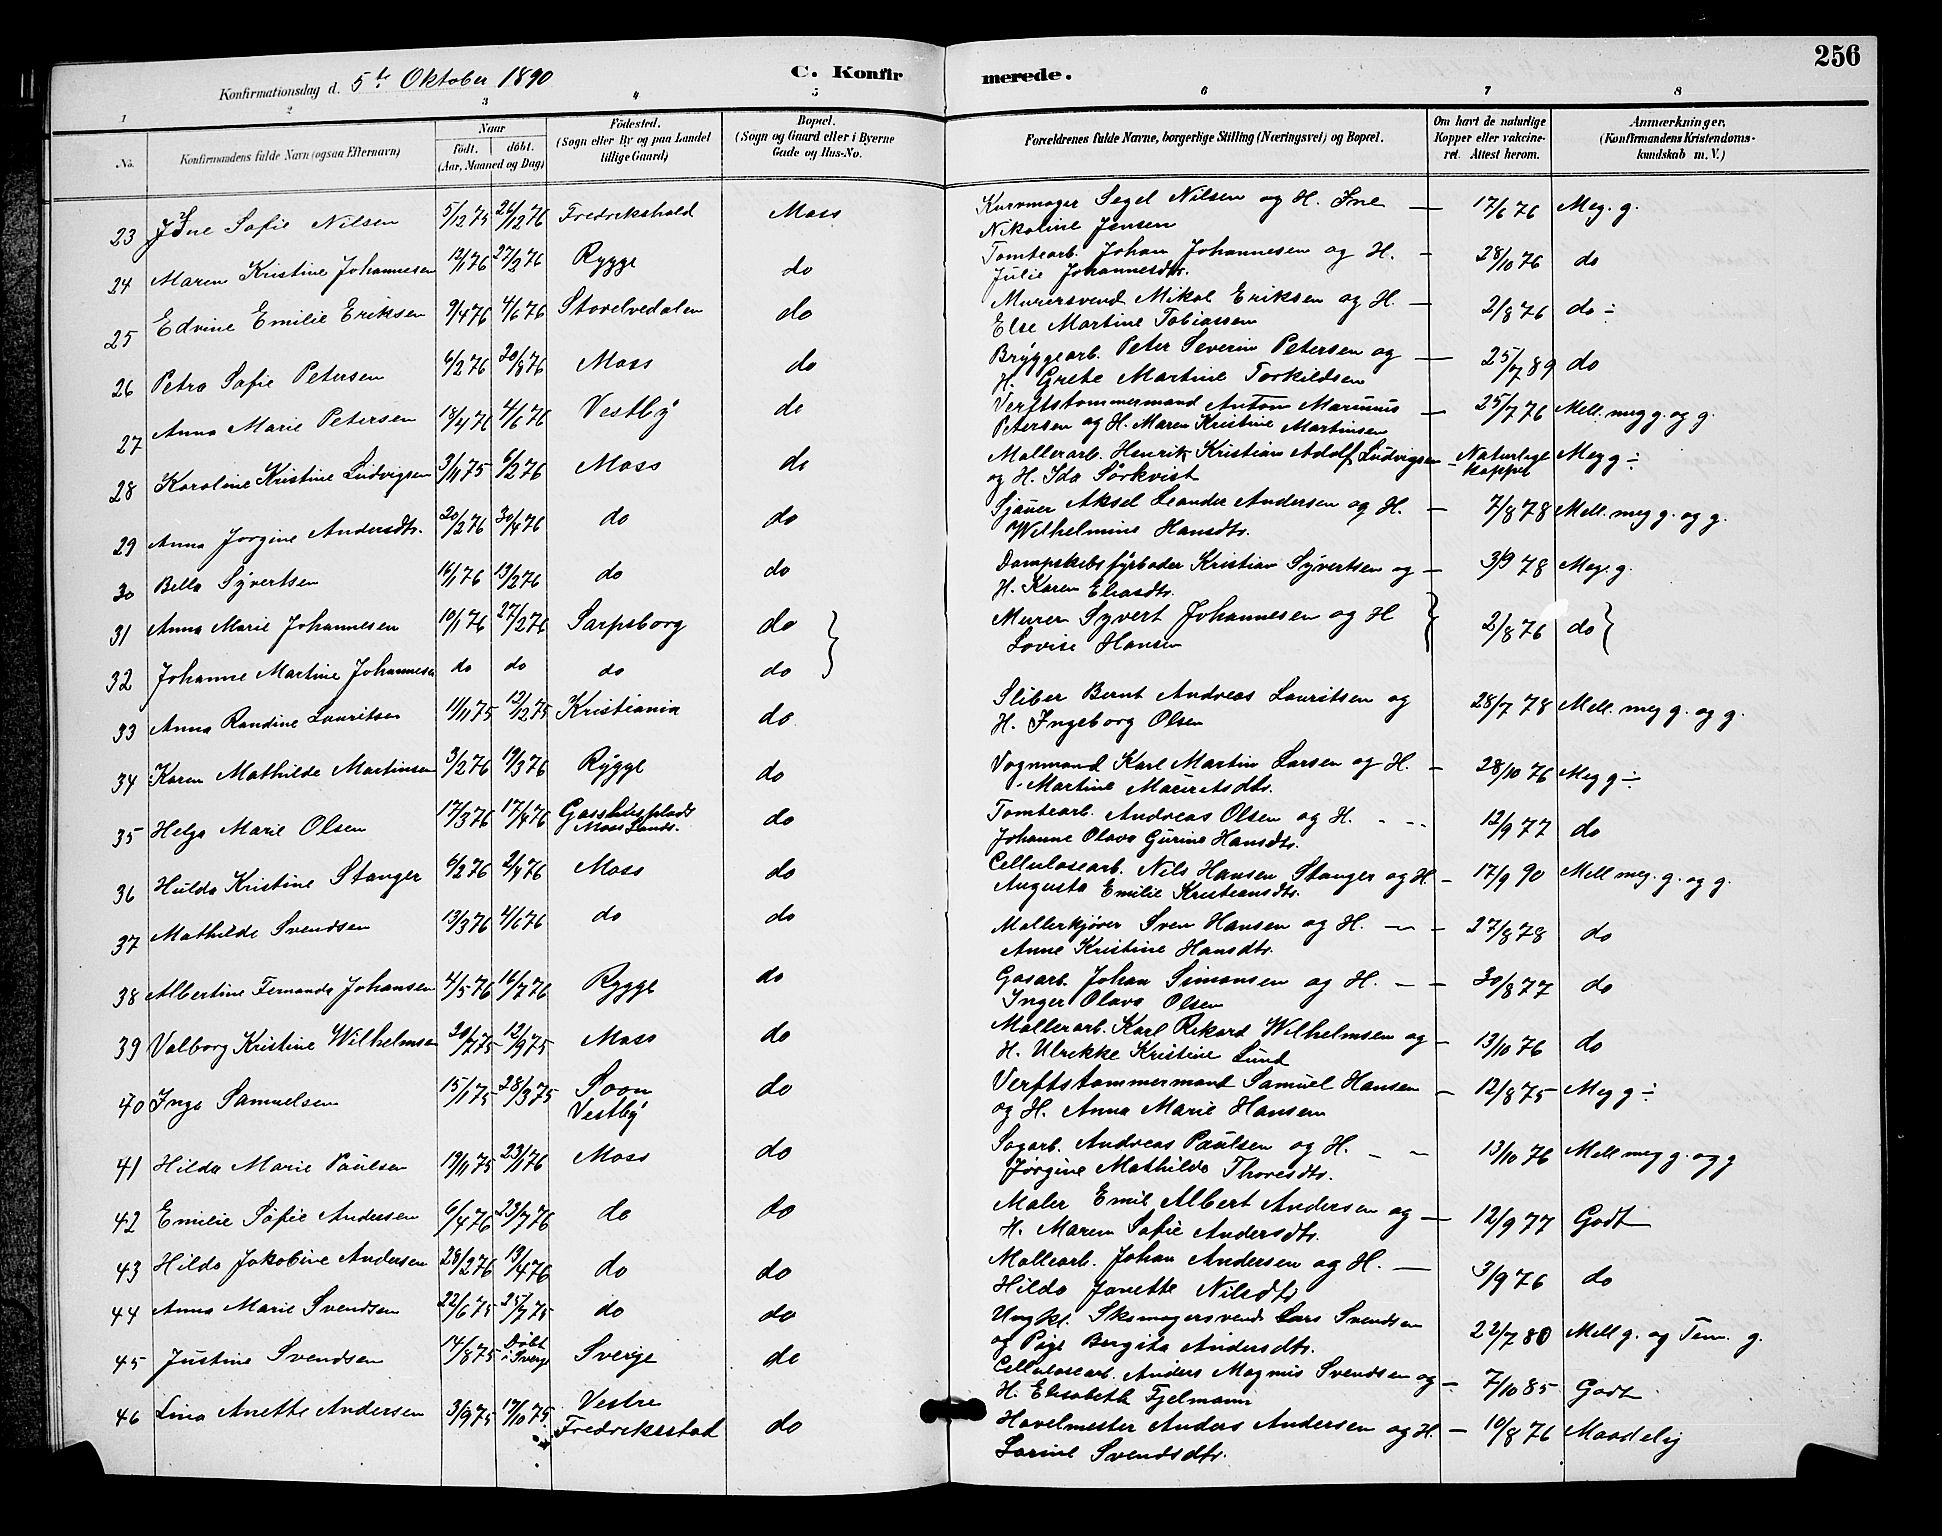 256
Konfirmationsdag d. 5te Oktober 1890
C. Konfirmerede.
1 2 3 4 5 6 7 8
No. Konfirmandens fulde Navn (ogsaa Efternavn) Naar födt. döbt. (Aar, Maaned og Dag) Födested. (Sogn eller By og paa Landet tillige Gaard) Bopæl. (Sogn og Gaard eller i Byerne Gade og Hus-No. Forældrenes fulde Navne, borgerlige Stilling (Næringsvei) og Bopæl. Om havt de naturlige Kopper eller vakcineret. Attest herom. Anmærkninger. (Konfirmandens Kristendomskundskab m. V.)
23 Ine Sofie Nilsen 5/12 75 26/12 76 Fredrikshald Moss Kurvmager Segel Nilsen og H. Ine Nikoline Jensen — 17/6 76 Meg. g.
24 Maren Kristine Johannesen 12/1 76 27/2 76 Rygge do Tomtearb. Johan Johannesen og H. Julie Johannesdtr. — 28/10 76 do
25 Edvine Emilie Eriksen 9/4 76 4/6 76 Storelvedalen do Murersvend Mikal Eriksen og H. Else Martine Tobiassen — 2/8 76 do ÷
26 Petra Sofie Petersen 6/2 76 20/8 76 Moss do Bryggearb. Peter Severin Petersen og H. Grete Martine Torkildsen — 25/7 89 do
27 Anna Marie Petersen 18/4 76 4/6 76 Vestby do Verftstommermand Anton Marinius Petersen og H. Maren Kristine Martinsen — 25/7 76 Mell. meg g. og g.
28 Karoline Kristine Ludvigsen 3/11 75 6/2 76 Moss do Mollerarb. Henrik Kristian Adolf Ludvigsen og H. Ida Sörkvist — Naturlige kopper Meg g ÷
29 Anna Jorgine Andersdtr. 20/2 76 30/4 76 do do Sjauer Aksel Leander Andersen og H. Wilhelmine Hansdtr. — 7/8 78 Mell. meg g. og g.
30 Bella Syvertsen 16/1 76 13/2 76 do do Dampskibsfyrbøder Kristian Syvertsen og H. Karen Eliasdtr. — 3/9 78 Meg. g.
31 Anna Marie Johannesen 10/1 76 27/2 76 Sarpsborg do } Murer Syvert Johannesen og H Lovise Hansen } 2/8 76 do }
32 Johanne Martine Johannesen do do do do
33 Anna Randine Lauritsen 11/11 75 12/12 75 Kristiania do Sliber Bernt Andreas Lauritsen og H. Ingeborg Olsen 28/7 78 Mell. meg g. og g.
34 Karen Mathilde Martinsen 3/2 76 19/3 76 Rygge do Vognmand Karl Martin Larsen og H. Martine Mauritsdtr. — 28/10 76 Meg g ÷
35 Helga Marie Olsen 17/3 76 17/4 76 Moss Lands. do Tomtearb. Andreas Olsen og H. Johanne Olava Gurine Hansdtr. - - - 12/9 77 do
36 Hulda Kristine Stanger 6/2 76 2/4 76 Moss do Cellulosearb. Nils Hansen Stanger og H. Augusta Emilie Kristiansdtr. — 17/9 90 Mell meg. g. og g.
37 Mathilde Svendsen 13/3 76 4/6 76 do do Mollerkjører Sven Hansen og H. Anne Kristine Hansdtr. — - 27/8 78 do
38 Albertine Fernanda Johansen 4/5 76 16/7 76 Rygge do Gasarb. Johan Simonsen og H. Inger Olava Olsen — - 30/8 77 do
39 Valborg Kristine Wilhelmsen 20/7 75 12/9 75 Moss do Mollerarb. Karl Rikard Wilhelmsen og H. Ulrikke Kristine Lund — 13/10 76 do
40 Inga Samuelsen 15/1 75 28/3 75 Soon Vestby do Verftstommermand Samuel Hansen og H. Anna Marie Hansen — 12/8 75 Meg g ÷
41 Hilda Marie Paulsen 19/11 75 23/1 76 Moss do Sagarb. Andreas Paulsen og H. Jørgine Mathilde Thoresdtr. - - 13/10 76 Mell meg g. og g
42 Emilie Sofie Andersen 6/4 76 23/7 76 do do Maler Emil Albert Andersen og H. Maren Sofie Andersdtr. — 12/9 77 Godt
43 Hilda Jakobine Andersen 28/2 76 19/4 76 do do Mollearb. Johan Andersen og H. Hilda Janette Nilsdtr — 3/9 76 do
44 Anna Marie Svendsen 22/6 75 25/7 75 do do Ungkl. Skomagersvend Lars Svendsen og Pige Bergita Andersdtr. 22/7 80 Mell g. og Tem. g.
45 Justine Svendsen 14/8 75 Døbt i Sverge Sverge do Cellulosearb. Anders Magnus Svendsen og H. Elisabeth Fjelmann — 7/10 85 Godt
46 Lina Anette Andersen 3/9 75 17/10 75 Vestre Fredriksstad do Hovelmester Anders Andersen og H. Larine Svendsdtr. — 10/8 76 Maadelig